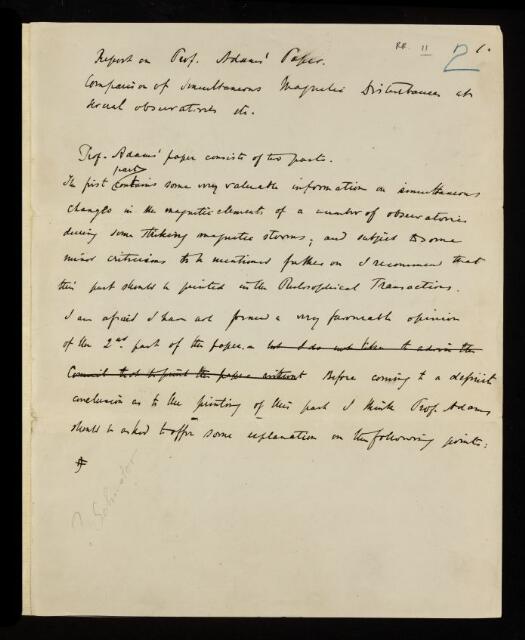 RR. 11 1.
Report on Prof. Adams' Paper.
Comparison of simultaneous Magnetic Disturbances at
several observatories etc.
Prof. Adams' paper consists of two parts.
part
The first contains some very valuable information on simultaneous
changes in the magnetic elements of a number of observatories
during some striking magnetic storms; and subject to some
minor criticisms to be mentioned further on I recommend that
this part should be printed in the Philosophical Transactions.
I am afraid I have not formed a very favourable opinion
of the 2nd part of the paper. but I do not like to advise the
Committee not to print the paper without Before coming to a definite
conclusion as to the printing of this part I think Prof. Adams
should be asked to offer some explanation on the following points:
? Schuster